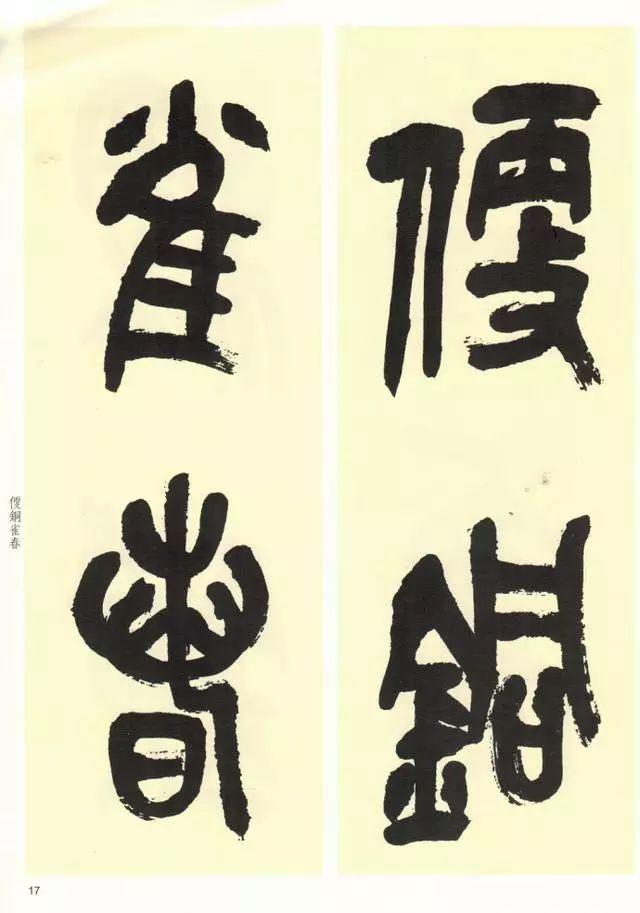 便銅
雀春
便銅雀春
17